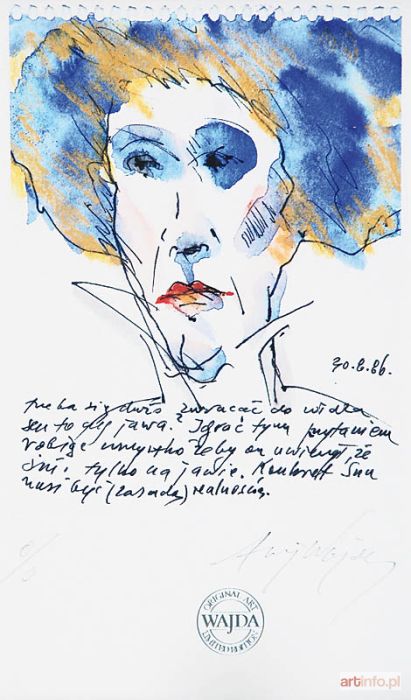 30.8.86.
trzeba się dziś zwracać do widza
sen to czy jawa? Igrać tym pytaniem
robiąc wszystko żeby on uwierzył, że
śni, tylko na jawie. Konkret Snu
musi być (zasada) realnością.
e/a
Andrzej Wajda
ORIGINAL ART
WAJDA
LIMITED EDITION
artinfo.pl